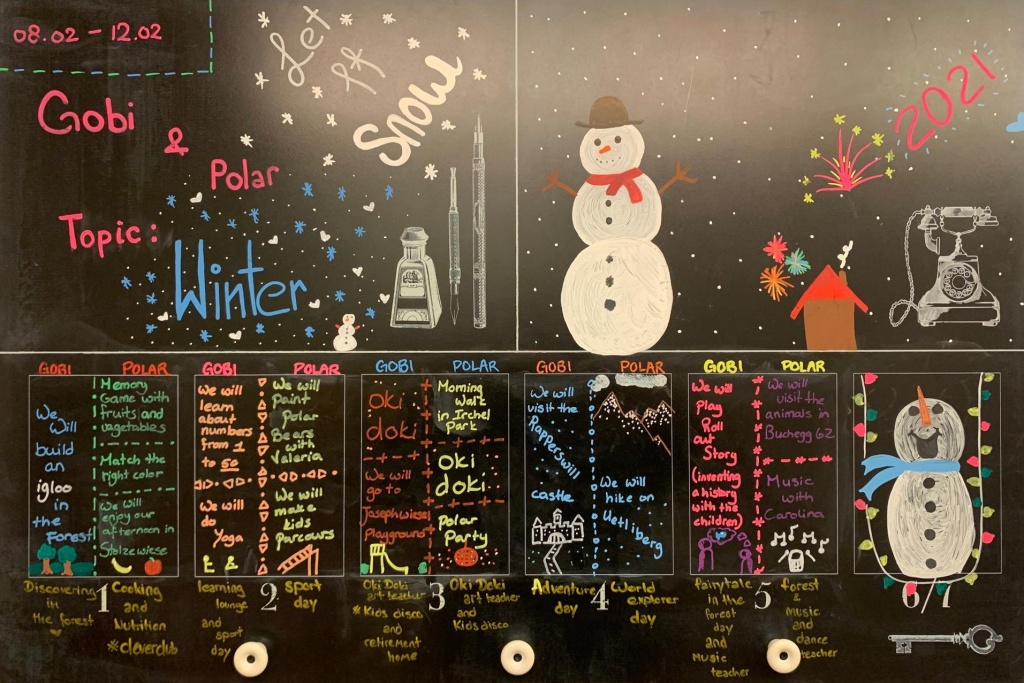 08.02 - 12.02
Let
it
Snow
Gobi
&
Polar
Topic:
Winter
2021
GOBI POLAR
We
Will
build
an
igloo
in
the
Forest
Memory
Game with
fruits and
vegetables
Match the
right color
We will
enjoy our
afternoon in
Stolzewiese
1
Discovering
in
the forest
Cooking
and
Nutrition
*cleverclub
GOBI POLAR
We will
learn
about
numbers
from 1
to 50
We will
do
Yoga
We will
Paint
Polar
Bears
with
Valeria
We will
make
kids
Parcours
2
learning
lounge
and
sport
day
sport
day
GOBI POLAR
Oki
doki
We will
go to
Josephwiese
Playground
Morning
Walk
in Irchel
Park
Oki
doki
Polar
Party
3
Oki Doki
art teacher
*Kids disco
and
retirement
home
Oki Deki
art teacher
and
Kids disco
GOBI POLAR
We will
visit the
Rapperswill
castle
We will
hike on
Uetliberg
4
Adventure
day
World
explorer
day
GOBI POLAR
We will
Play
Roll
out
Story
(inventing
a history
with the
children)
We will
visit the
animals in
Buchegg 62
Music
with
Carolina
5
fairytale
in the
forest
day
and
Music
teacher
forest
&
Music
and
dance
teacher
6/7